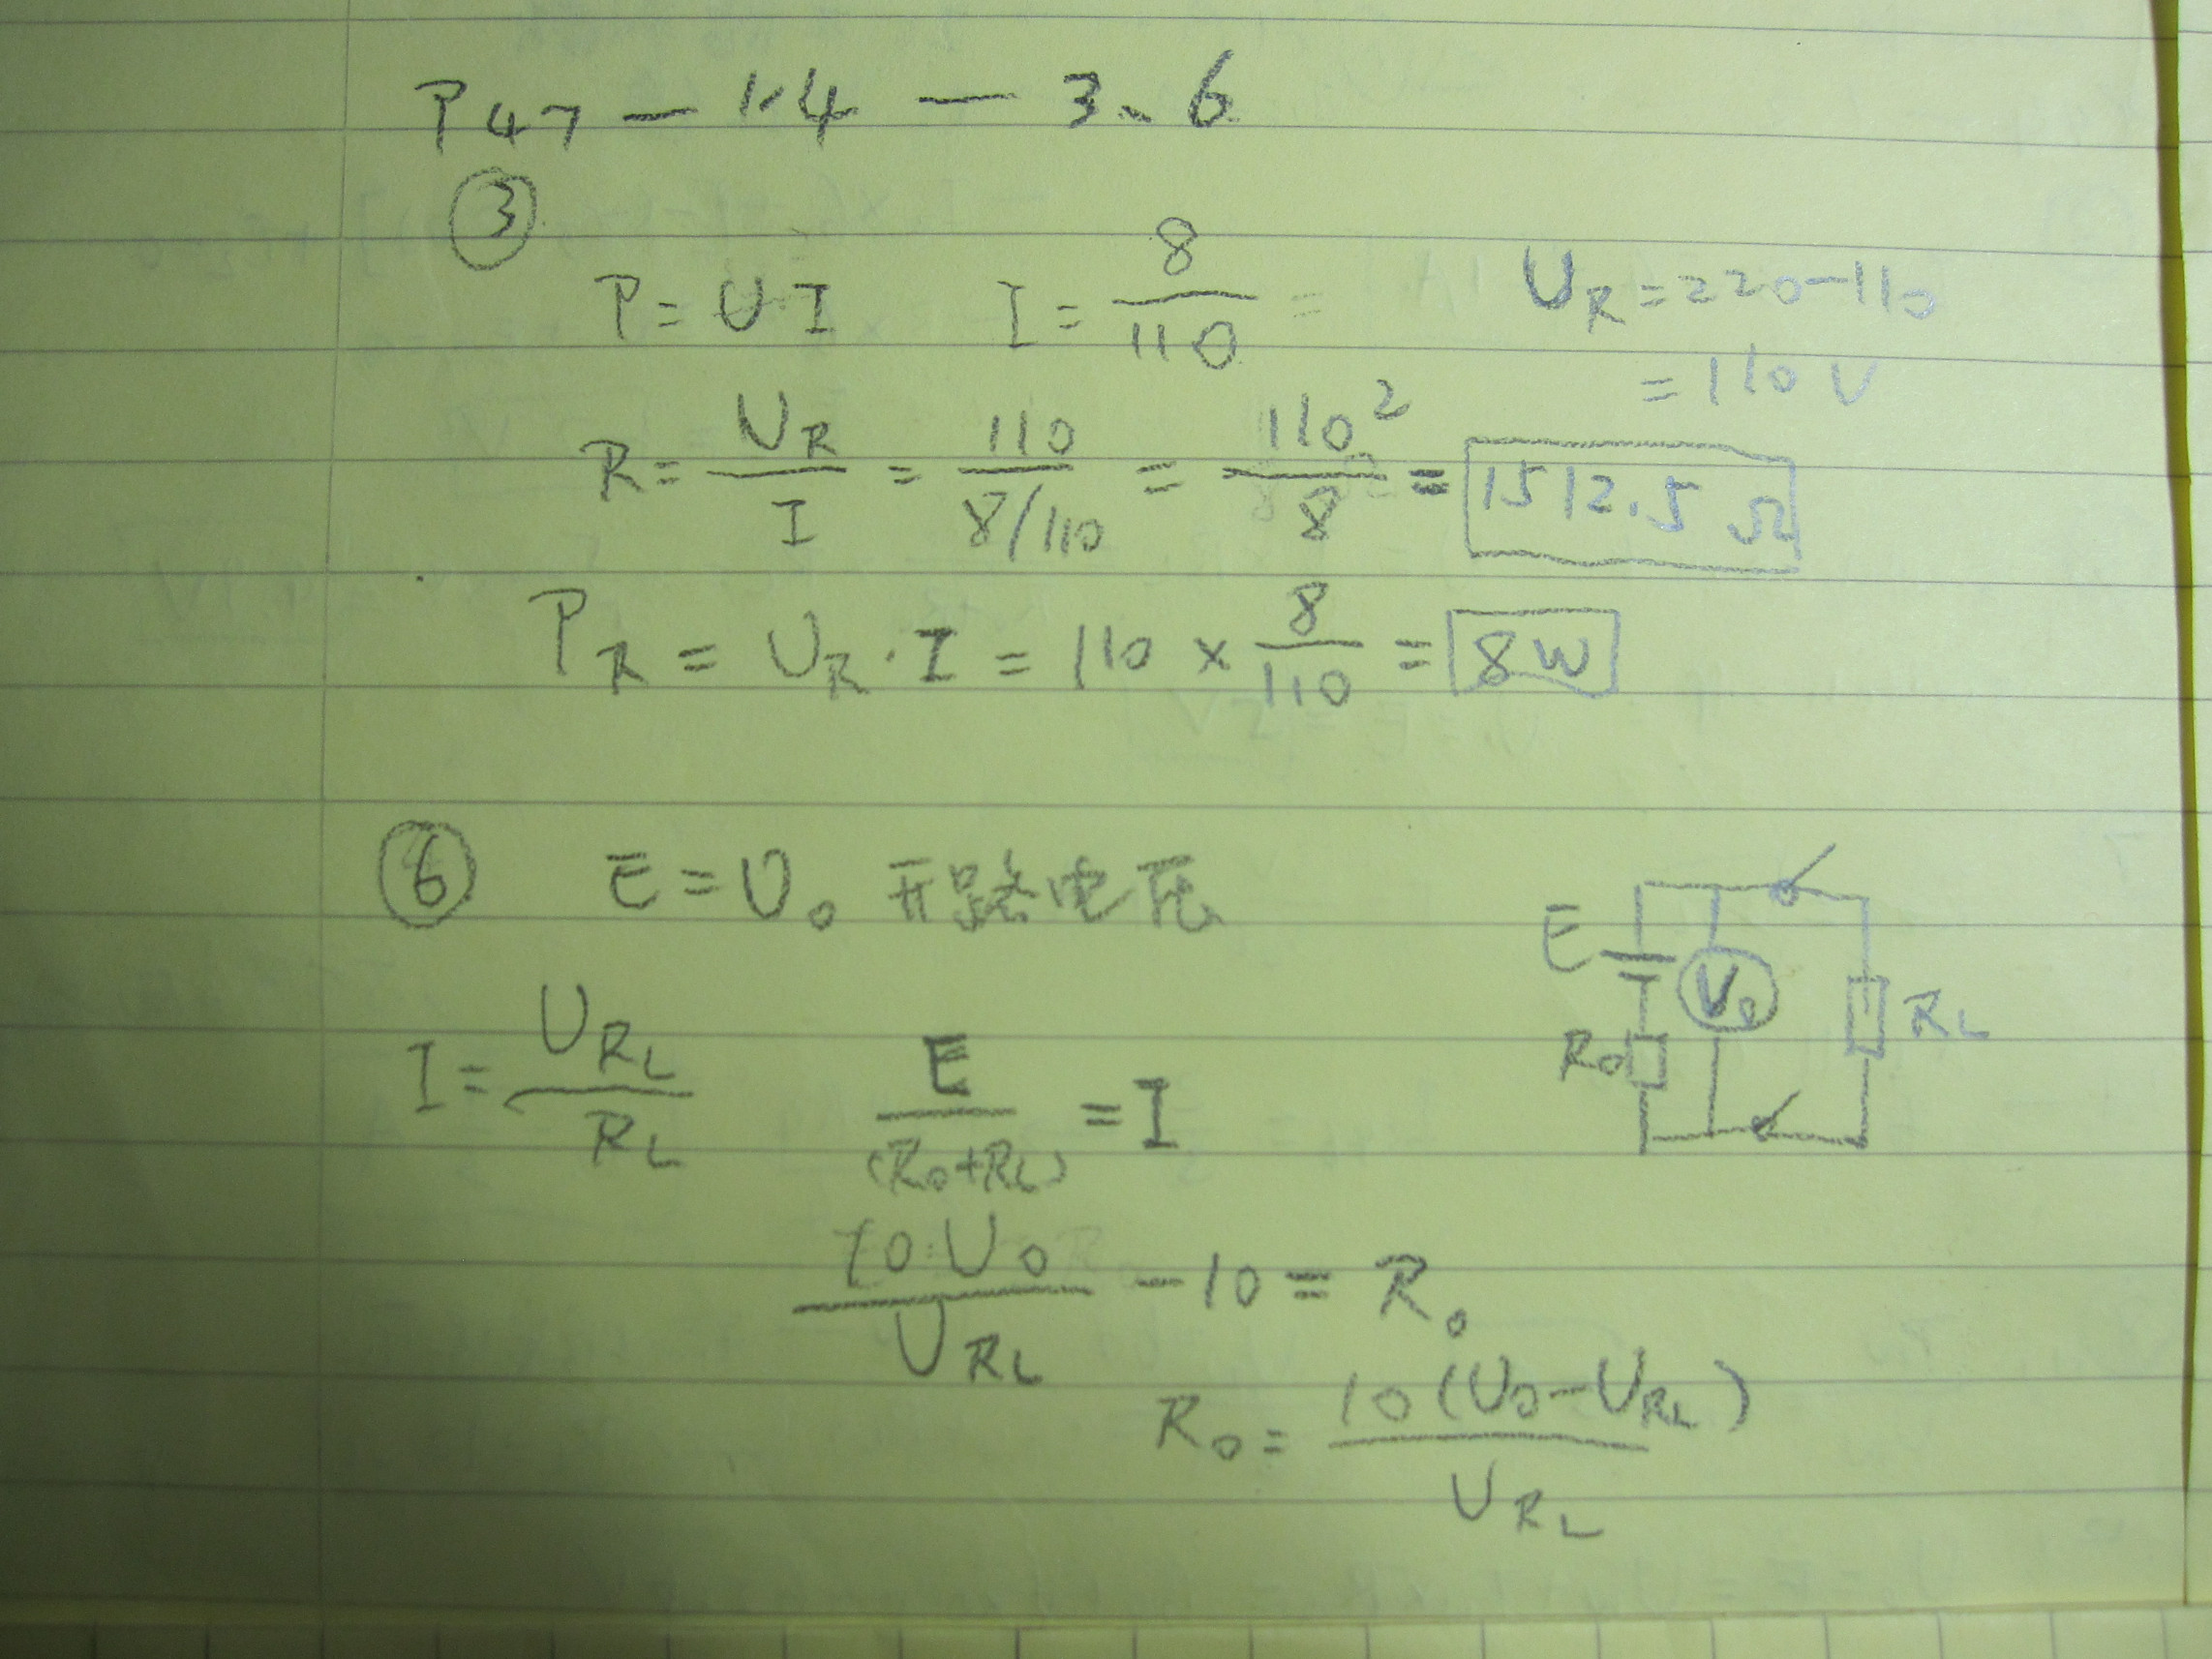 P47 — 1.4 — 3.6
③
P = U·I    I = 8/110 =    U_R = 220-110
= 110 V
R = U_R/I = 110/(8/110) = 110²/8 = 1512.5 Ω
P_R = U_R · I = 110 × 8/110 = 8W
⑥ E = U₀ 开路电压
E V₀ R₀ R_L
I = U_RL/R_L    E/(R₀+R_L) = I
10·U₀/U_RL - 10 = R₀
R₀ = 10(U₀-U_RL)/U_RL